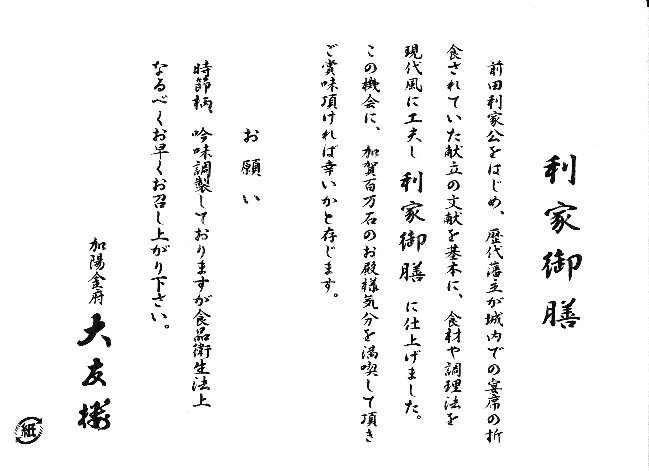 利家御膳
前田利家公をはじめ、歴代藩主が城内での宴席の折
食されていた献立の文献を基本に、食材や調理法を
現代風に工夫し 利家御膳 に仕上げました。
この機会に、加賀百万石のお殿様気分を満喫して頂き
ご賞味頂ければ幸いかと存じます。
お願い
時節柄、吟味調製しておりますが食品衛生法上
なるべくお早くお召し上がり下さい。
加陽金府
大友楼
紙